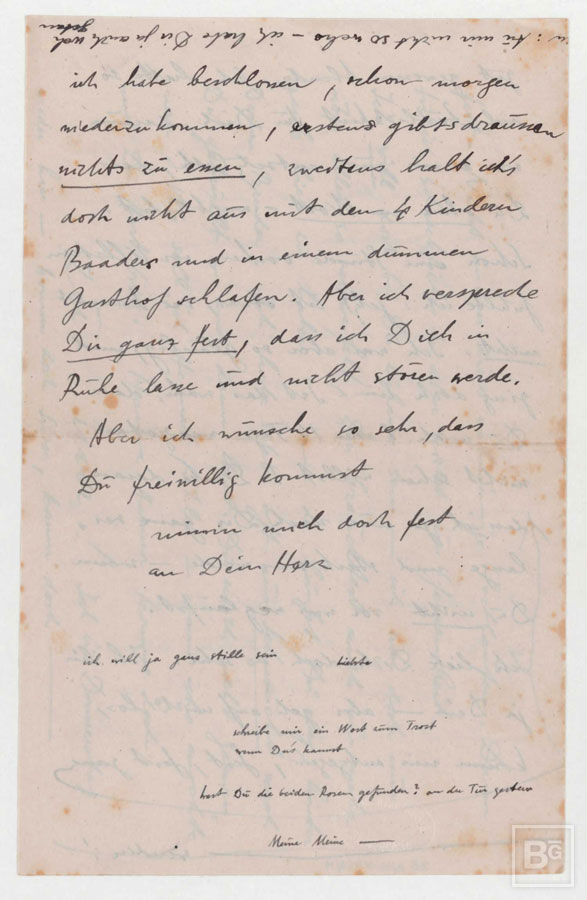 tu mir nicht so weh — ich habe Dir ja auch weh
getan
ich habe beschlossen, schon morgen
wiederzukommen, erstens gibts draussen
nichts zu essen, zweitens halt ich's
doch nicht aus mit den 4 Kindern
Baaders und in einem dummen
Gasthof schlafen. Aber ich verspreche
Dir ganz fest, dass ich Dich in
Ruhe lasse und nicht stören werde.
Aber ich wünsche so sehr, dass
Du freiwillig kommst
nimm mich doch fest
an Dein Herz
ich will ja ganz stille sein Liebste
schreibe mir ein Wort zum Trost
wenn Du's kannst
hast Du die beiden Rosen gefunden? an der Tür gestern
Meine Meine —
BG